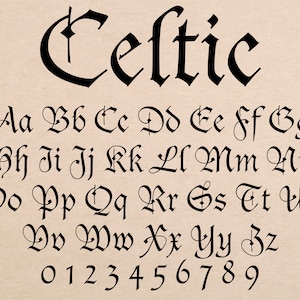 Celtic
Aa Bb Cc Dd Ee Ff G
Hh Ii Jj Kk Ll Mm N
Oo Pp Qq Rr Ss Tt U
Vv Ww Xx Yy Zz
0 1 2 3 4 5 6 7 8 9